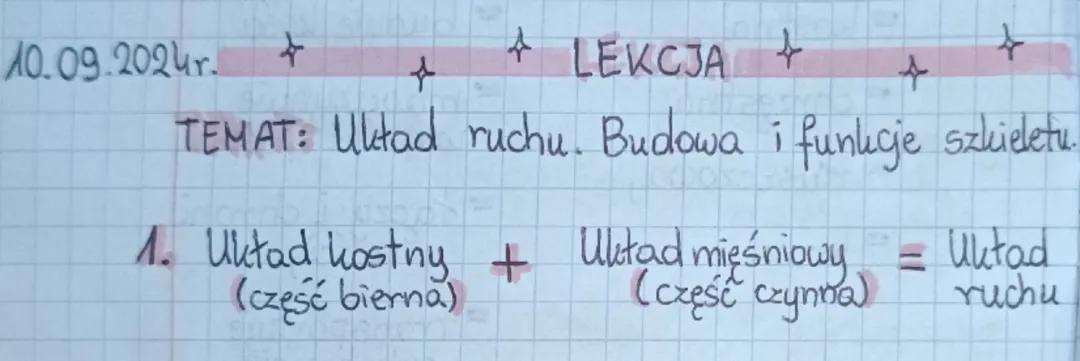 10.09.2024r. LEKCJA
TEMAT: Układ ruchu. Budowa i funkcje szkieletu.
1. Układ kostny + Układ mięśniowy = Układ
(część bierna) (część czynna) ruchu